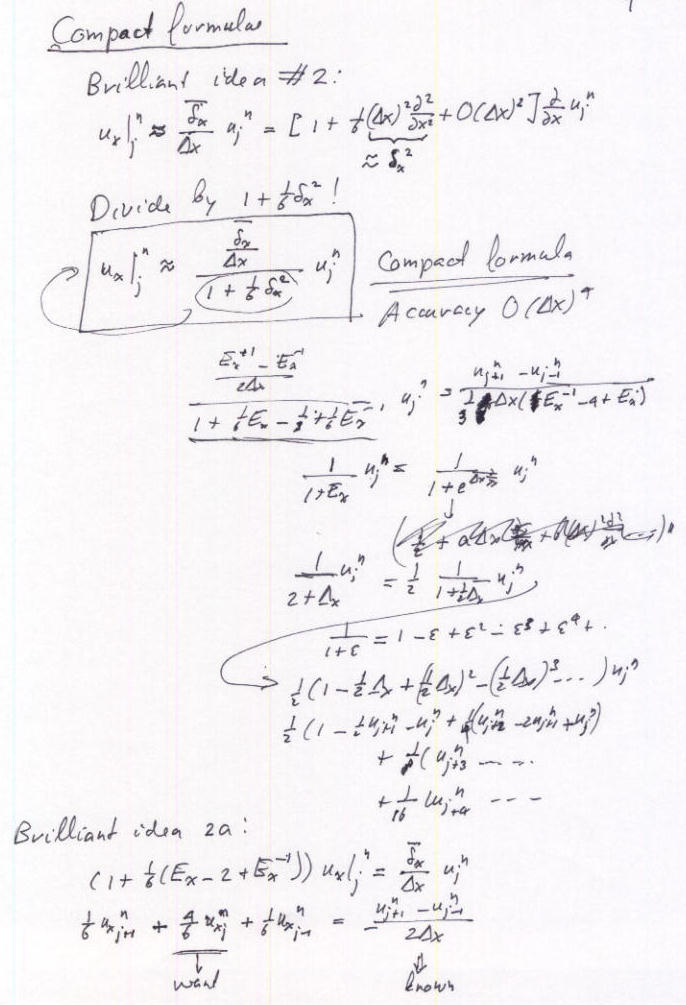 Compact formulas
Brilliant idea #2:
u_x|_j^n ≈ \frac{\bar{δ}_x}{Δx} u_j^n = [1 + \frac{1}{6}(Δx)^2 \frac{∂^2}{∂x^2} + O(Δx)^2] \frac{∂}{∂x} u_j^n
≈ δ_x^2
Divide by 1 + \frac{1}{6} δ_x^2 !
u_x|_j^n ≈ \frac{\frac{\bar{δ}_x}{Δx}}{1 + \frac{1}{6} δ_x^2} u_j^n Compact formula
Accuracy O(Δx)^4
\frac{\frac{E_x^{+1} - E_x^{-1}}{2Δx}}{1 + \frac{1}{6}E_x - \frac{1}{3} + \frac{1}{6}E_x^{-1}} u_j^n = \frac{u_{j+1}^n - u_{j-1}^n}{\frac{1}{3}Δx(E_x^{-1} - 4 + E_x)}
\frac{1}{1+E_x} u_j^n = \frac{1}{1 + e^{Δx \frac{∂}{∂x}}} u_j^n
\frac{1}{2+Δ_x} u_j^n = \frac{1}{2} \frac{1}{1+\frac{1}{2}Δ_x} u_j^n
\frac{1}{1+ε} = 1 - ε + ε^2 - ε^3 + ε^4 + .
\frac{1}{2}(1 - \frac{1}{2}Δ_x + (\frac{1}{2}Δ_x)^2 - (\frac{1}{2}Δ_x)^3 ...) u_j^n
\frac{1}{2}(1 - \frac{1}{2}u_{j+1}^n - u_j^n + \frac{1}{4}(u_{j+2}^n - 2u_{j+1}^n + u_j^n)
+ (u_{j+3}^n ----
+ \frac{1}{16}(u_{j+4}^n ---
Brilliant idea 2a:
(1 + \frac{1}{6}(E_x - 2 + E_x^{-1})) u_x|_j^n = \frac{\bar{δ}_x}{Δx} u_j^n
\frac{1}{6} u_{x j+1}^n + \frac{4}{6} u_{x j}^n + \frac{1}{6} u_{x j-1}^n = \frac{u_{j+1}^n - u_{j-1}^n}{2Δx}
want known